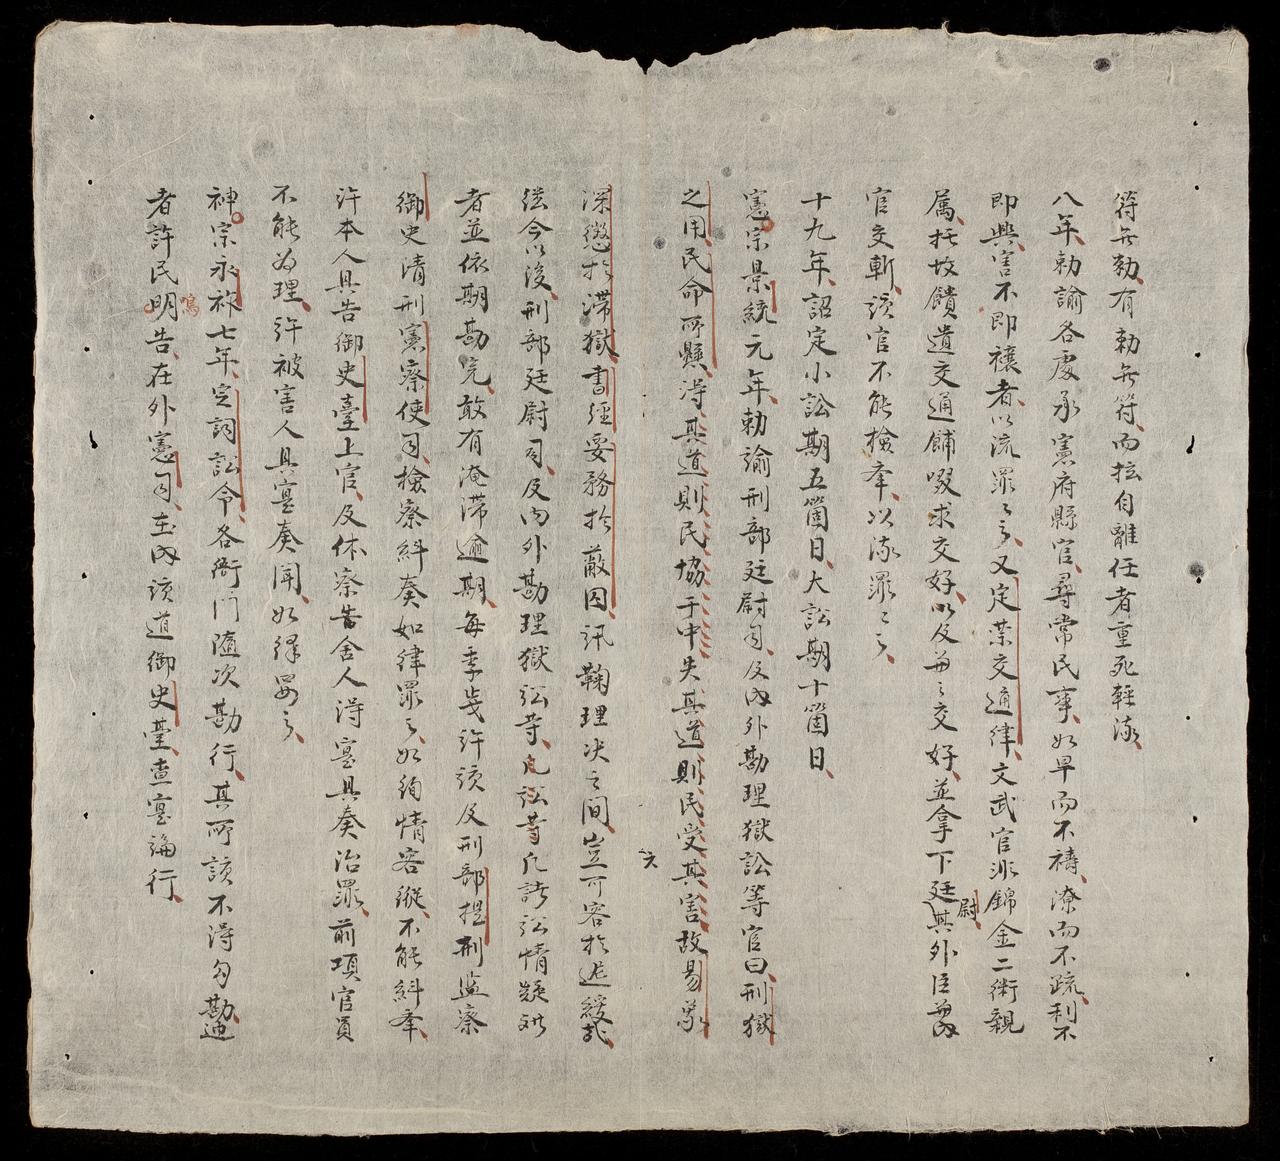 符無勅有勅無符而拉自離任者重死輕流
八年勅諭各處承憲府縣官尋常民事如旱而不禱潦而不疏利不
即興害不即禳者以流罪〻之又定禁交通律文武官涉錦金二衛親
属托故饋遺交通餔啜求交好以及兼之交好並拿下廷尉其外臣兼内
官交斬該官不能檢舉以流罪〻之
十九年詔定小訟期五箇日大訟期十箇日
憲宗景統元年勅諭刑部廷尉司及内外勘理獄訟等官曰刑獄
之用民命所懸得其道則民協于中失其道則民受其害故易象
深慜於滞獄書經要務於蔽囚訊鞠理决之間豈可容於延緩哉
継今以後刑部廷尉司及内外勘理獄訟等凡訟等凡訴訟情疑
者並依期勘完敢有淹滞逾期每季歲許該及刑部提刑监察
御史清刑憲察使司檢察糾奏如律罪之如徇情容縱不能糾舉
許本人具告御史臺上官及体察舍人得寔具奏治罪前項官員
不能为理許被害人具寔奏聞如律罪之
神宗永祚七年定詞訟令各衙門隨次勘行其所該不得勾勘迪
者許民鳴明告在外憲司在内該道御史臺查寔論行
六